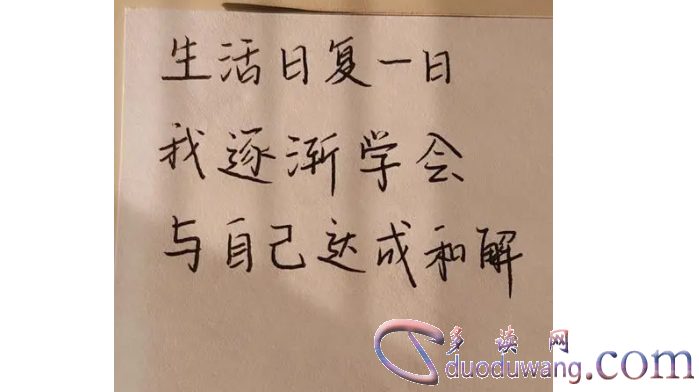 生活日复一日
我逐渐学会
与自己达成和解
多读网
duoduwang.com